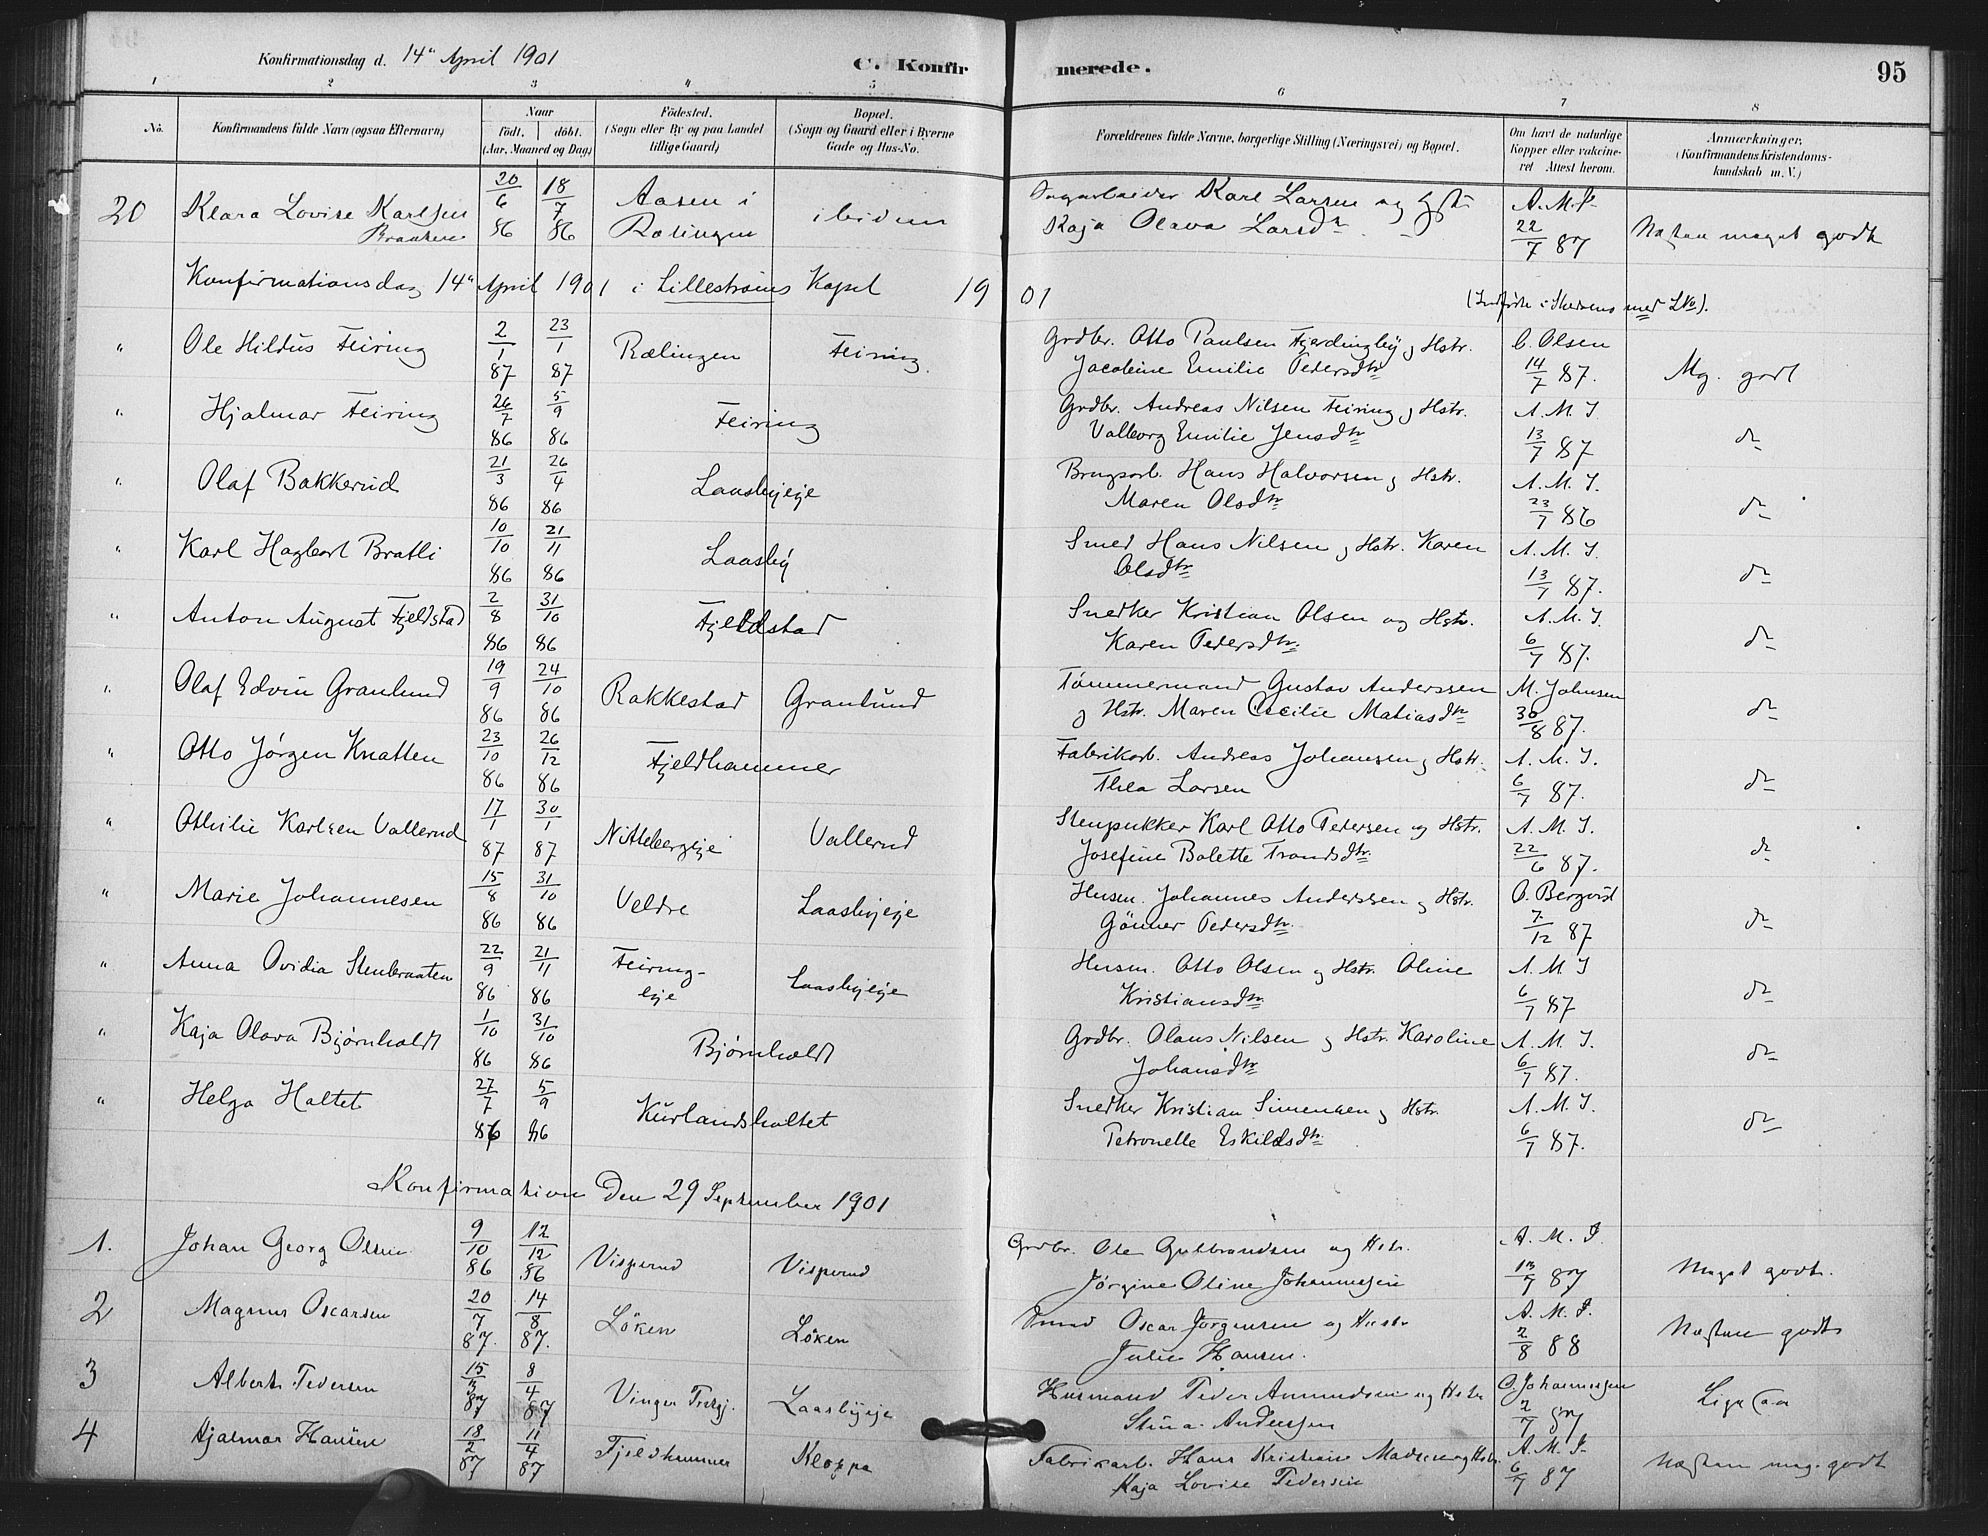 Konfirmationsdag d. 14de April 1901
C. Konfirmerede.
95
1 2 3 4 5 6 7 8
No.
Konfirmandens fulde Navn (ogsaa Efternavn)
Naar
født. døbt.
(Aar, Maaned og Dag)
Fødested.
(Sogn eller By og paa Landet
tillige Gaard)
Bopæl.
(Sogn og Gaard eller i Byerne
Gade og Hus-No.
Forældrenes fulde Navne, borgerlige Stilling (Næringsvei) og Bopæl.
Om havt de naturlige
Kopper eller vakcine-
ret Attest herom.
Anmærkninger.
(Konfirmandens Kristendoms-
kundskab m. V.)
20 Klara Lovise Karlsen Braaten 20/6 86 18/7 86 Aasen i Rælingen ibidem Karl Larsen og Kaja Olava Larsdtr 22/7 87 Næsten meget godt
Konfirmationsdag 14de April 1901 i Lillestrøms Kapel 1901
" Ole Hildus Feiring 2/1 87 23/1 87 Rælingen Feiring Grdbr. Otto Paulsen Fjerdingby og Hstr. Jacobine Emilie Pedersdtr C. Olsen 14/7 87. Mg. godt
" Hjalmar Feiring 26/7 86 5/9 86 Feiring Grdbr. Andreas Nilsen Feiring og Hstr. Valborg Emilie Jensdtr A. M. J. 13/7 87 do
" Olaf Bakkerud 21/3 86 26/4 86 Laasbyeje Brugsarb. Hans Halvorsen og Hstr. Maren Olsdtr A. M. J. 23/7 86 do
" Karl Hagbart Bratli 10/10 86 21/11 86 Laasby Smed Hans Nilsen og Hstr. Karen Olsdtr A. M. J. 13/7 87. do
" Anton August Fjeldstad 2/8 86 31/10 86 Fjeldstad Snedker Kristian Olsen og Hstr. Karen Pedersdtr. A. M. J. 6/7 87. do
" Olaf Edvin Granlund 19/9 86 24/10 86 Rakkestad Granlund Tømmermand Gustav Anderssen og Hstr. Maren Cecilie Matiasdtr M. Johnsen 30/8 87. do
" Otto Jørgen Knatten 23/10 86 26/12 86 Fjeldhammer Fabrikarb. Andreas Johansen og Hstr. Thea Larsen A. M. J. 6/7 87. do
" Othilie Karlsen Vallerud 17/1 87 30/1 87 Nittebergeje Vallerud Stenpukker Karl Otto Pedersen og Hstr. Josefine Bolette Trondsdtr. A. M. J. 22/6 87. do
" Marie Johannesen 15/8 86 31/10 86 Veldre Laasbyeje Husm. Johannes Anderssen og Hstr. Gønner Pedersdtr. O. Bergvist 7/12 87 do
" Anna Ovidia Stenbraaten 22/9 86 21/11 86 Feiring-eje Laasbyeje Husm. Otto Olsen og Hstr. Oline Kristiansdtr A. M. J 6/7 87 do
" Kaja Olava Bjørnholdt 1/10 86 31/10 86 Bjørnholdt Grdbr. Olaus Nilsen og Hstr. Karoline Johansdtr A. M. J. 6/7 87. do
" Helga Holtet 27/7 86 5/9 86 Kurlandsholtet Snedker Kristian Simensen og Hstr. Petronelle Eskildsdtr. A. M. J. 6/7 87. do
Konfirmation Den 29 September 1901
1. Johan Georg Olsen 9/10 86 12/12 86 Visperud Visperud Grdbr. Ole Gulbrandsen og Hstr. Jørgine Oline Johannesen A. M. J. 13/7 87 Meget godt.
2 Magnus Oscarsen 20/7 87. 14/8 87. Løken Løken Oscar Jørgensen og Hustr Julie Hansen. A. M. J. 2/8 88 Næsten godt
3 Albert Pedersen 15/3 87 8/4 87 Vinger Laasbyeje Husmand Peder Amundsen og Hstr Stina Andersen O. Johannesen 2/7 87 Ligesaa
4 Hjalmar Hansen 18/2 87 11/4 87 Fjeldhammer Kloppa Fabrikarb. Hans Kristian Madsen og Hstr. Kaja Lovise Pedersen A. M. J. 6/7 87 Næsten meg. godt